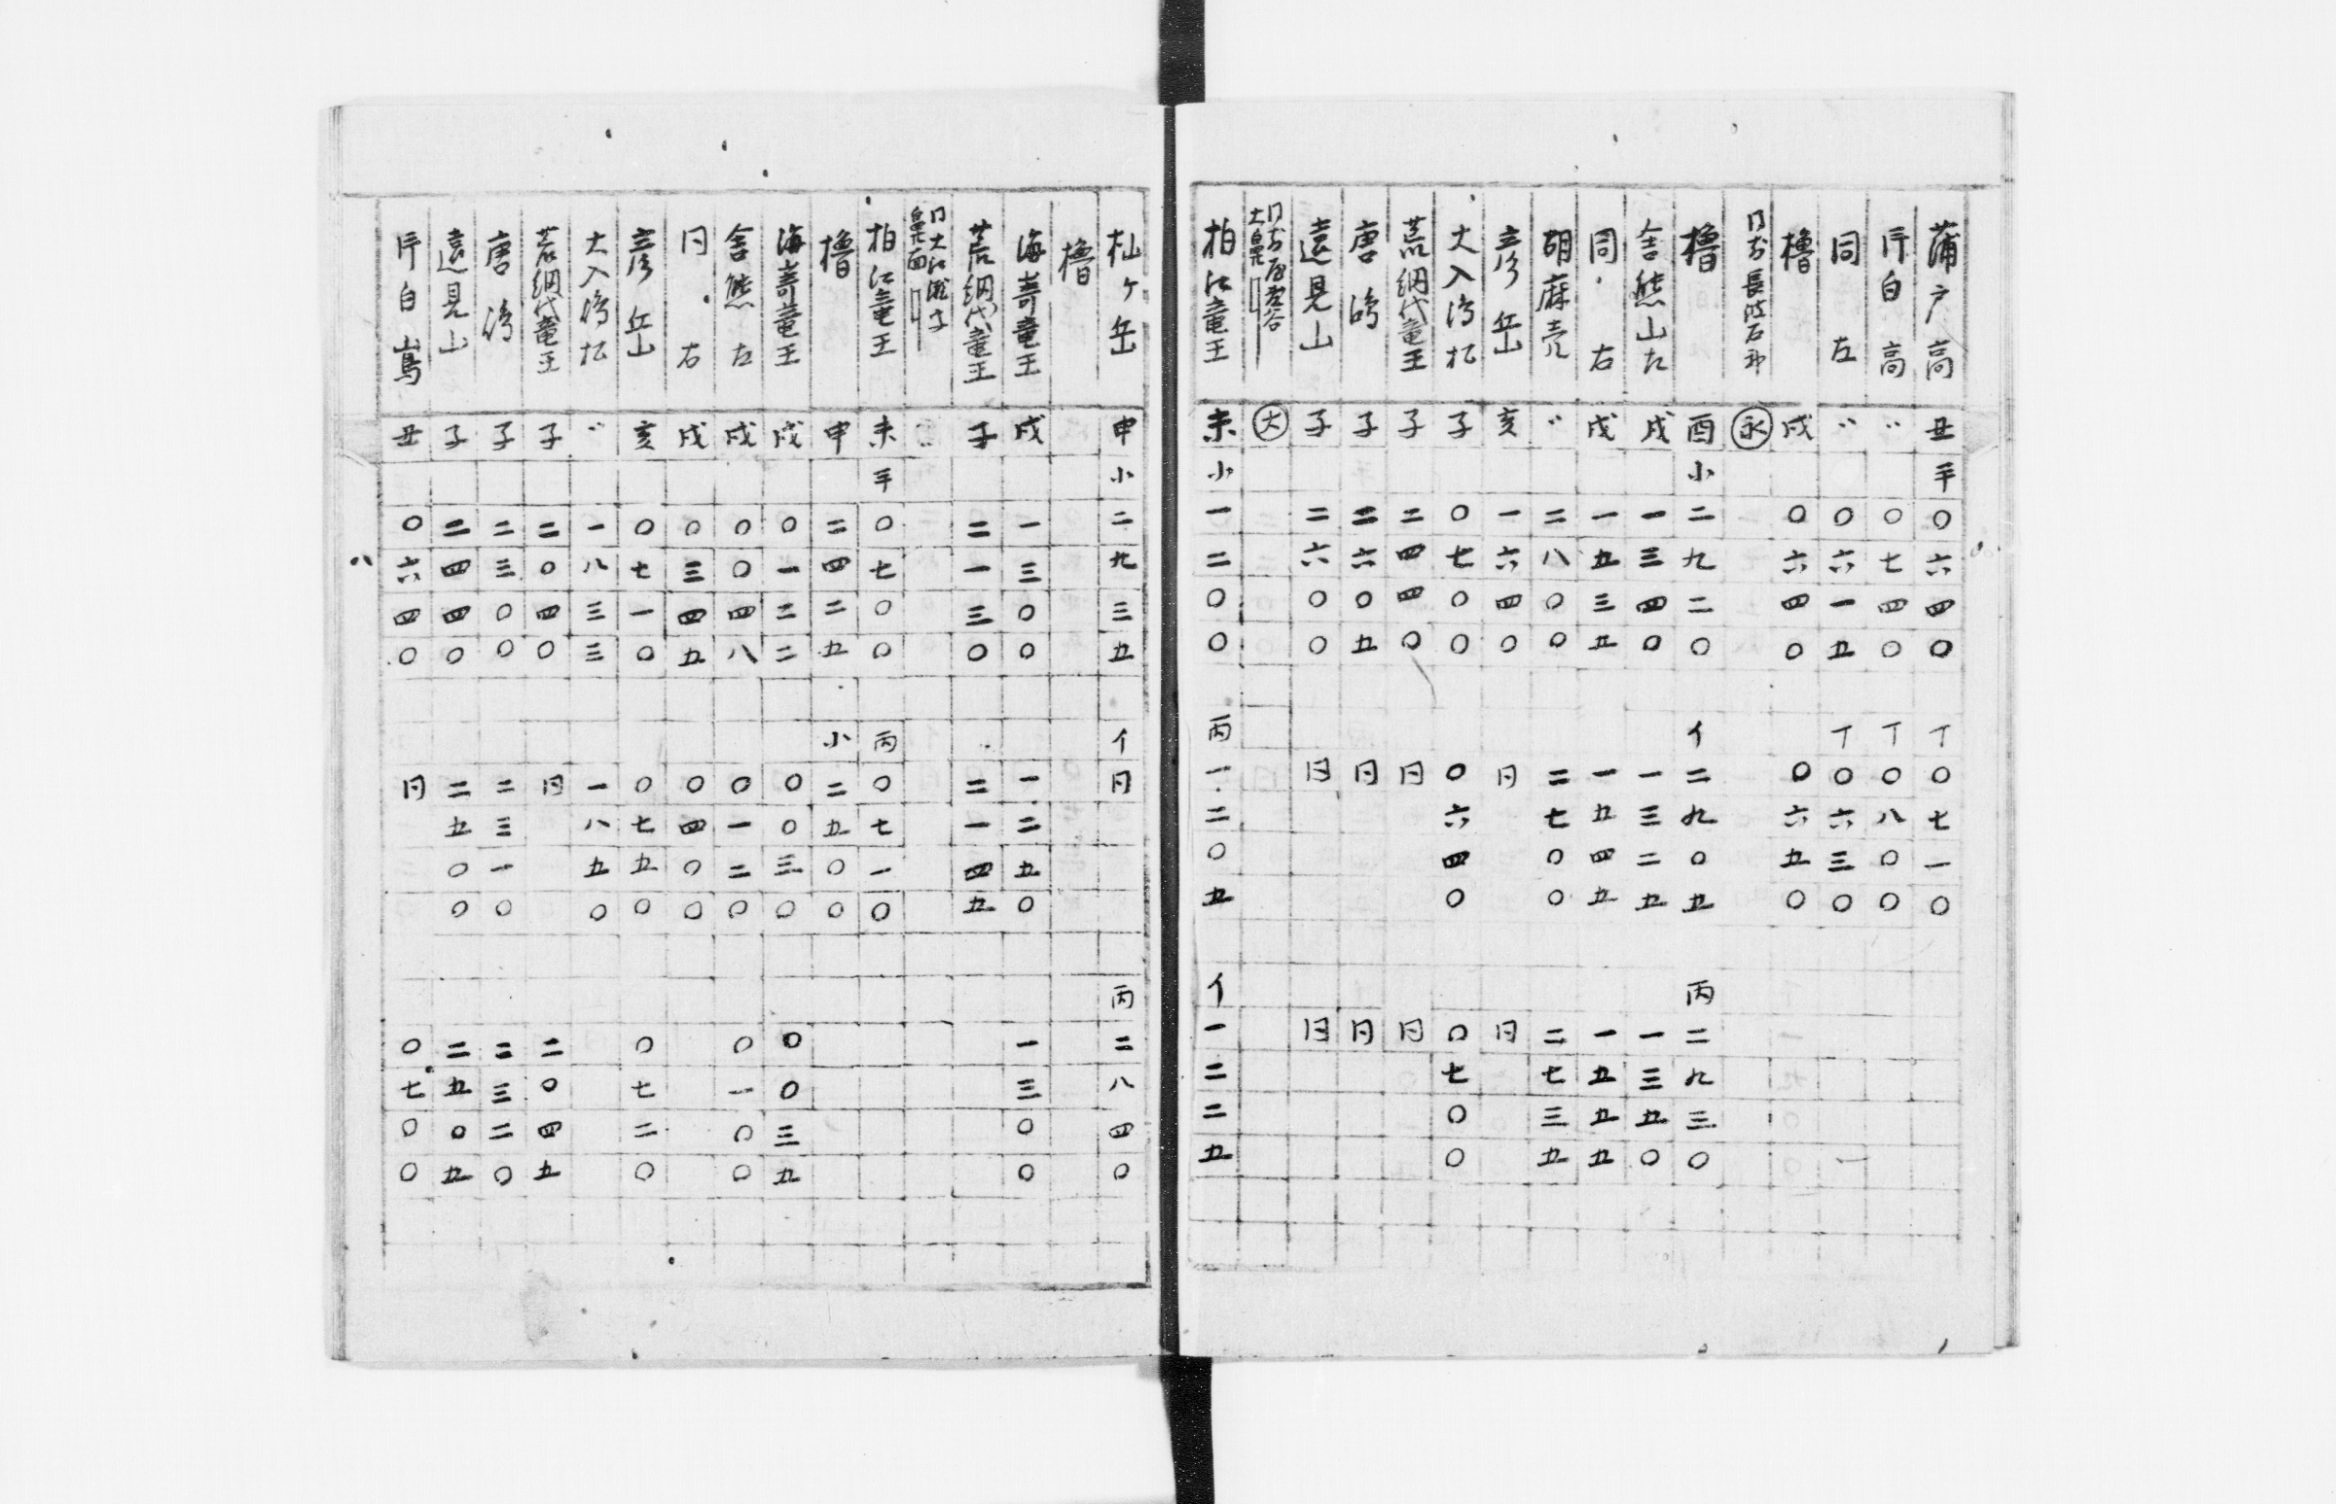 蒲戸高 丑 平 〇六四〇 丁 〇七一〇
片白高 〃 〇七四〇 丁 〇八〇〇
同左 〃 〇六一五 丁 〇六三〇
櫓 戌 〇六四〇 〇六五〇
永
櫓 酉 小 二九二〇 イ 二九〇五 丙 二九三〇
舎熊山左 戌 一三四〇 一三二五 一三五〇
同右 戌 一五三五 一五四五 一五五五
胡麻売 〃 二八〇〇 二七〇〇 二七三五
彦岳 亥 一六四〇 同 同
大入濤 子 〇七〇〇 〇六四〇 〇七〇〇
荒網代竜王 子 二四四〇 同 同
唐濤 子 二六〇五 同 同
遠見山 子 二六〇〇 同 同
大
柏江竜王 未 小 一二〇〇 丙 一二〇五 イ 一二二五
杣ヶ岳 申 小 二九三五 イ 同 丙 二八四〇
櫓
海嵜竜王 戌 一三〇〇 一二五〇 一三〇〇
荒網代竜王 子 二一三〇 二一四五
柏江竜王 未 平 〇七〇〇 丙 〇七一〇
櫓 申 二四二五 小 二五〇〇
海嵜竜王 戌 〇一二二 〇〇三〇 〇〇三五
舎熊左 戌 〇〇四八 〇一二〇 〇一〇〇
同右 戌 〇三四五 〇四〇〇
彦岳 亥 〇七一〇 〇七五〇 〇七二〇
大入濤 〃 一八三三 一八五〇
荒網代竜王 子 二〇四〇 同 二〇四五
唐濤 子 二三〇〇 二三一〇 二三二〇
遠見山 子 二四四〇 二五〇〇 二五〇五
片白嶌 丑 〇六四〇 同 〇七〇〇
八